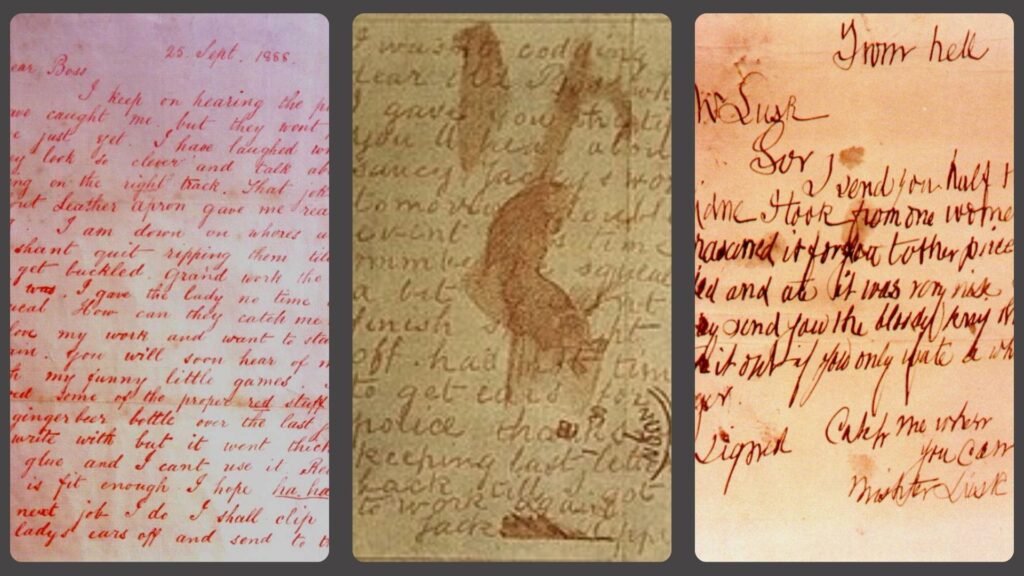 25. Sept. 1888.
ear Boss
I keep on hearing the p
ve caught me. but they wont
e just yet. I have laughed w
ey look so clever and talk ab
ng on the right track. That jok
out Leather apron gave me rea
I am down on whores a
shant quit ripping them til
get buckled. Grand work the
was. I gave the lady no time
ueal How can they catch me
love my work and want to sta
ain. You will soon hear of m
h my funny little games. I
ved some of the proper red stuff
ginger beer bottle over the last j
write with but it went thick
glue and I cant use it Red
is fit enough I hope ha. ha
next job I do I shall clip
ladys ears off and send to t
I wasnt codding
dear old Boss wh
I gave you the tip
you'll hear about
saucy Jacky's wor
tomorrow double
event this time
number one squealed
a bit couldnt
finish straight
off. had not time
to get ears for
police thanks
keeping last letter
back till I got
to work again
Jack Rippe
From hell
Mr Lusk
Sor
I send you half t
idne I took from one women
prasarved it for you tother piece
ied and ate it was very nise
ay send you the bloody knif th
k it out if you only wate a wh
ger.
signed
Catch me when
you can
Mishter Lusk